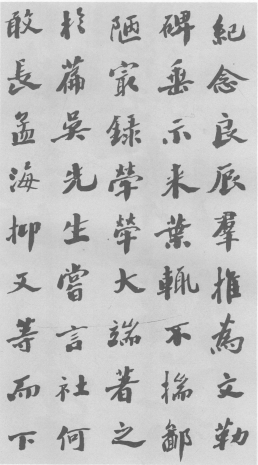 紀念良辰羣推為文勒
碑垂示来葉輒不揣鄙
陋冣録犖犖大端著之
於篇吳先生嘗言社何
敢長孟海抑又等而下